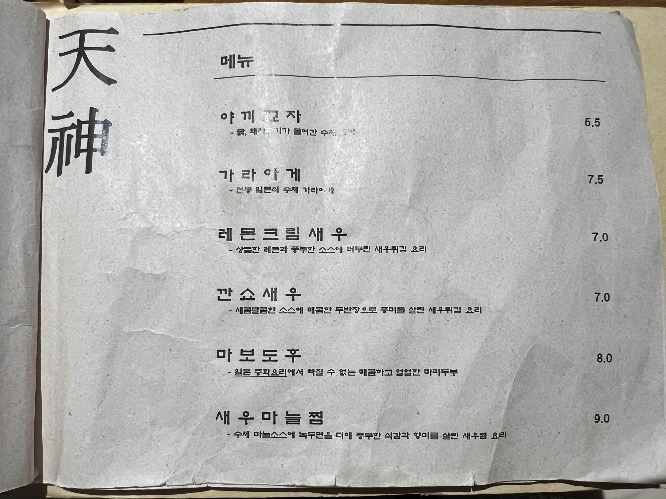 天神
메뉴
야끼교자 5.5
- 닭, 돼지고기가 들어간 수제
가라아게 7.5
- 전통 일본식 수제 가라아게
레몬크림새우 7.0
- 상큼한 레몬과 풍부한 소스에 버무린 새우튀김 요리
깐쇼새우 7.0
- 새콤달콤한 소스에 매콤한 두반장으로 풍미를 살린 새우튀김 요리
마보도후 8.0
- 일본 중화요리에서 빠질 수 없는 매콤하고 얼얼한 마파두부
새우마늘찜 9.0
- 수제 마늘소스에 녹두면을 더해 풍부한 식감과 향미를 살린 새우찜 요리